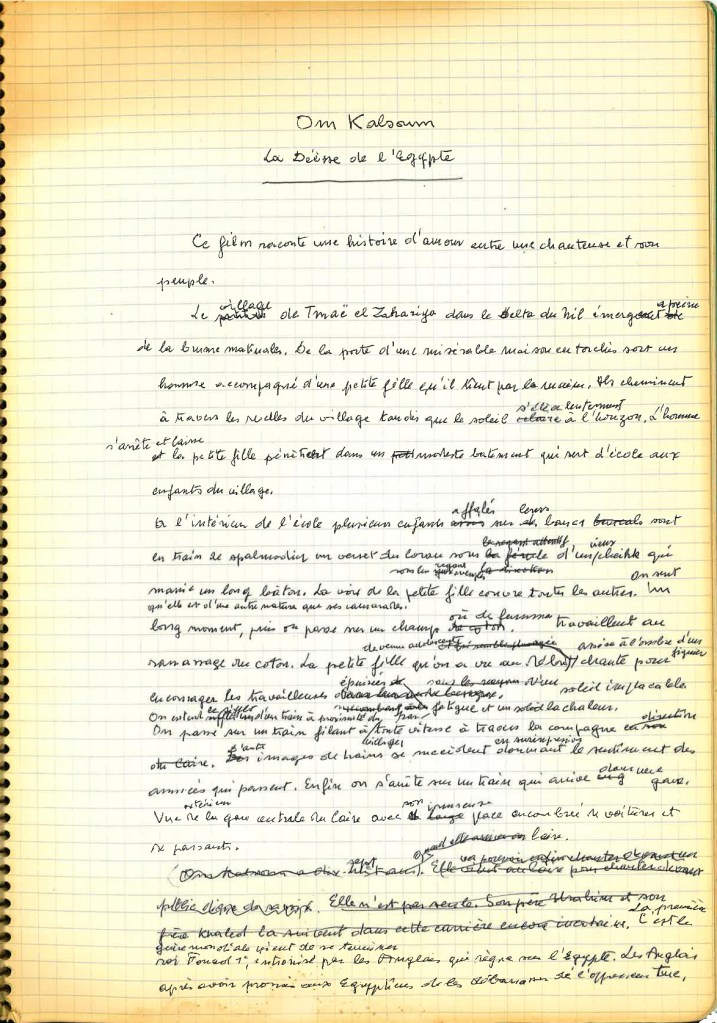 Om Kalsoum
La Déesse de l'Egypte
Ce film raconte une histoire d'amour entre une chanteuse et son
peuple.
village à peine
Le de Tmaë el Zahariya dans le Delta du Nil émerge
de la brume matinales. De la porte d'une misérable maison en torchis sort un
homme accompagné d'une petite fille qu'il tient par la main. Ils cheminent
s'élève lentement
à travers les ruelles du village tandis que le soleil éclaire à l'horizon. L'homme
s'arrête et laisse
et la petite fille pénétrer dans un modeste batiment qui sert d'école aux
enfants du village.
affalés leurs
A l'intérieur de l'école plusieurs enfants sur bancs sont
le regard attentif vieux
en train de psalmodier un verset du Coran sous d'un cheikh qui
la direction On sent
manie un long bâton. La voix de la petite fille couvre toutes les autres. Un
qu'elle est d'une autre nature que ses camarades.
où des femmes
long moment, puis on passe sur un champ de coton travaillent au
devenue adolescente assise à l'ombre d'un figuier
ramassage du coton. La petite fille qu'on a vu au début chante pour
épuisées
encourager les travailleuses soleil implacable
On entend le sifflet d'un train à proximité du fatigue et la chaleur.
direction
On passe sur un train filant à toute vitesse à travers la campagne
D'autres en surimpression
du Caire. images de trains se succèdent donnant le sentiment des
dans une
années qui passent. Enfin on s'arrête sur un train qui arrive gare.
extérieure son immense
Vue de la gare centrale du Caire avec large place encombrée de voitures et
de passants.
Quand elle arrive au Caire.
Om Kalsoum a dix-sept ans. Elle
public digne de ce nom. Elle n'est pas seule. Son père Ibrahim et son
la première
frère Khaled la suivent dans cette carrière encore incertaine. C'est le
guerre mondiale vient de se terminer
roi Fouad 1er, intronisé par les Anglais qui règne sur l'Egypte. Les Anglais
après avoir promis aux Egyptiens de les débarrasser de l'oppresseur turc,